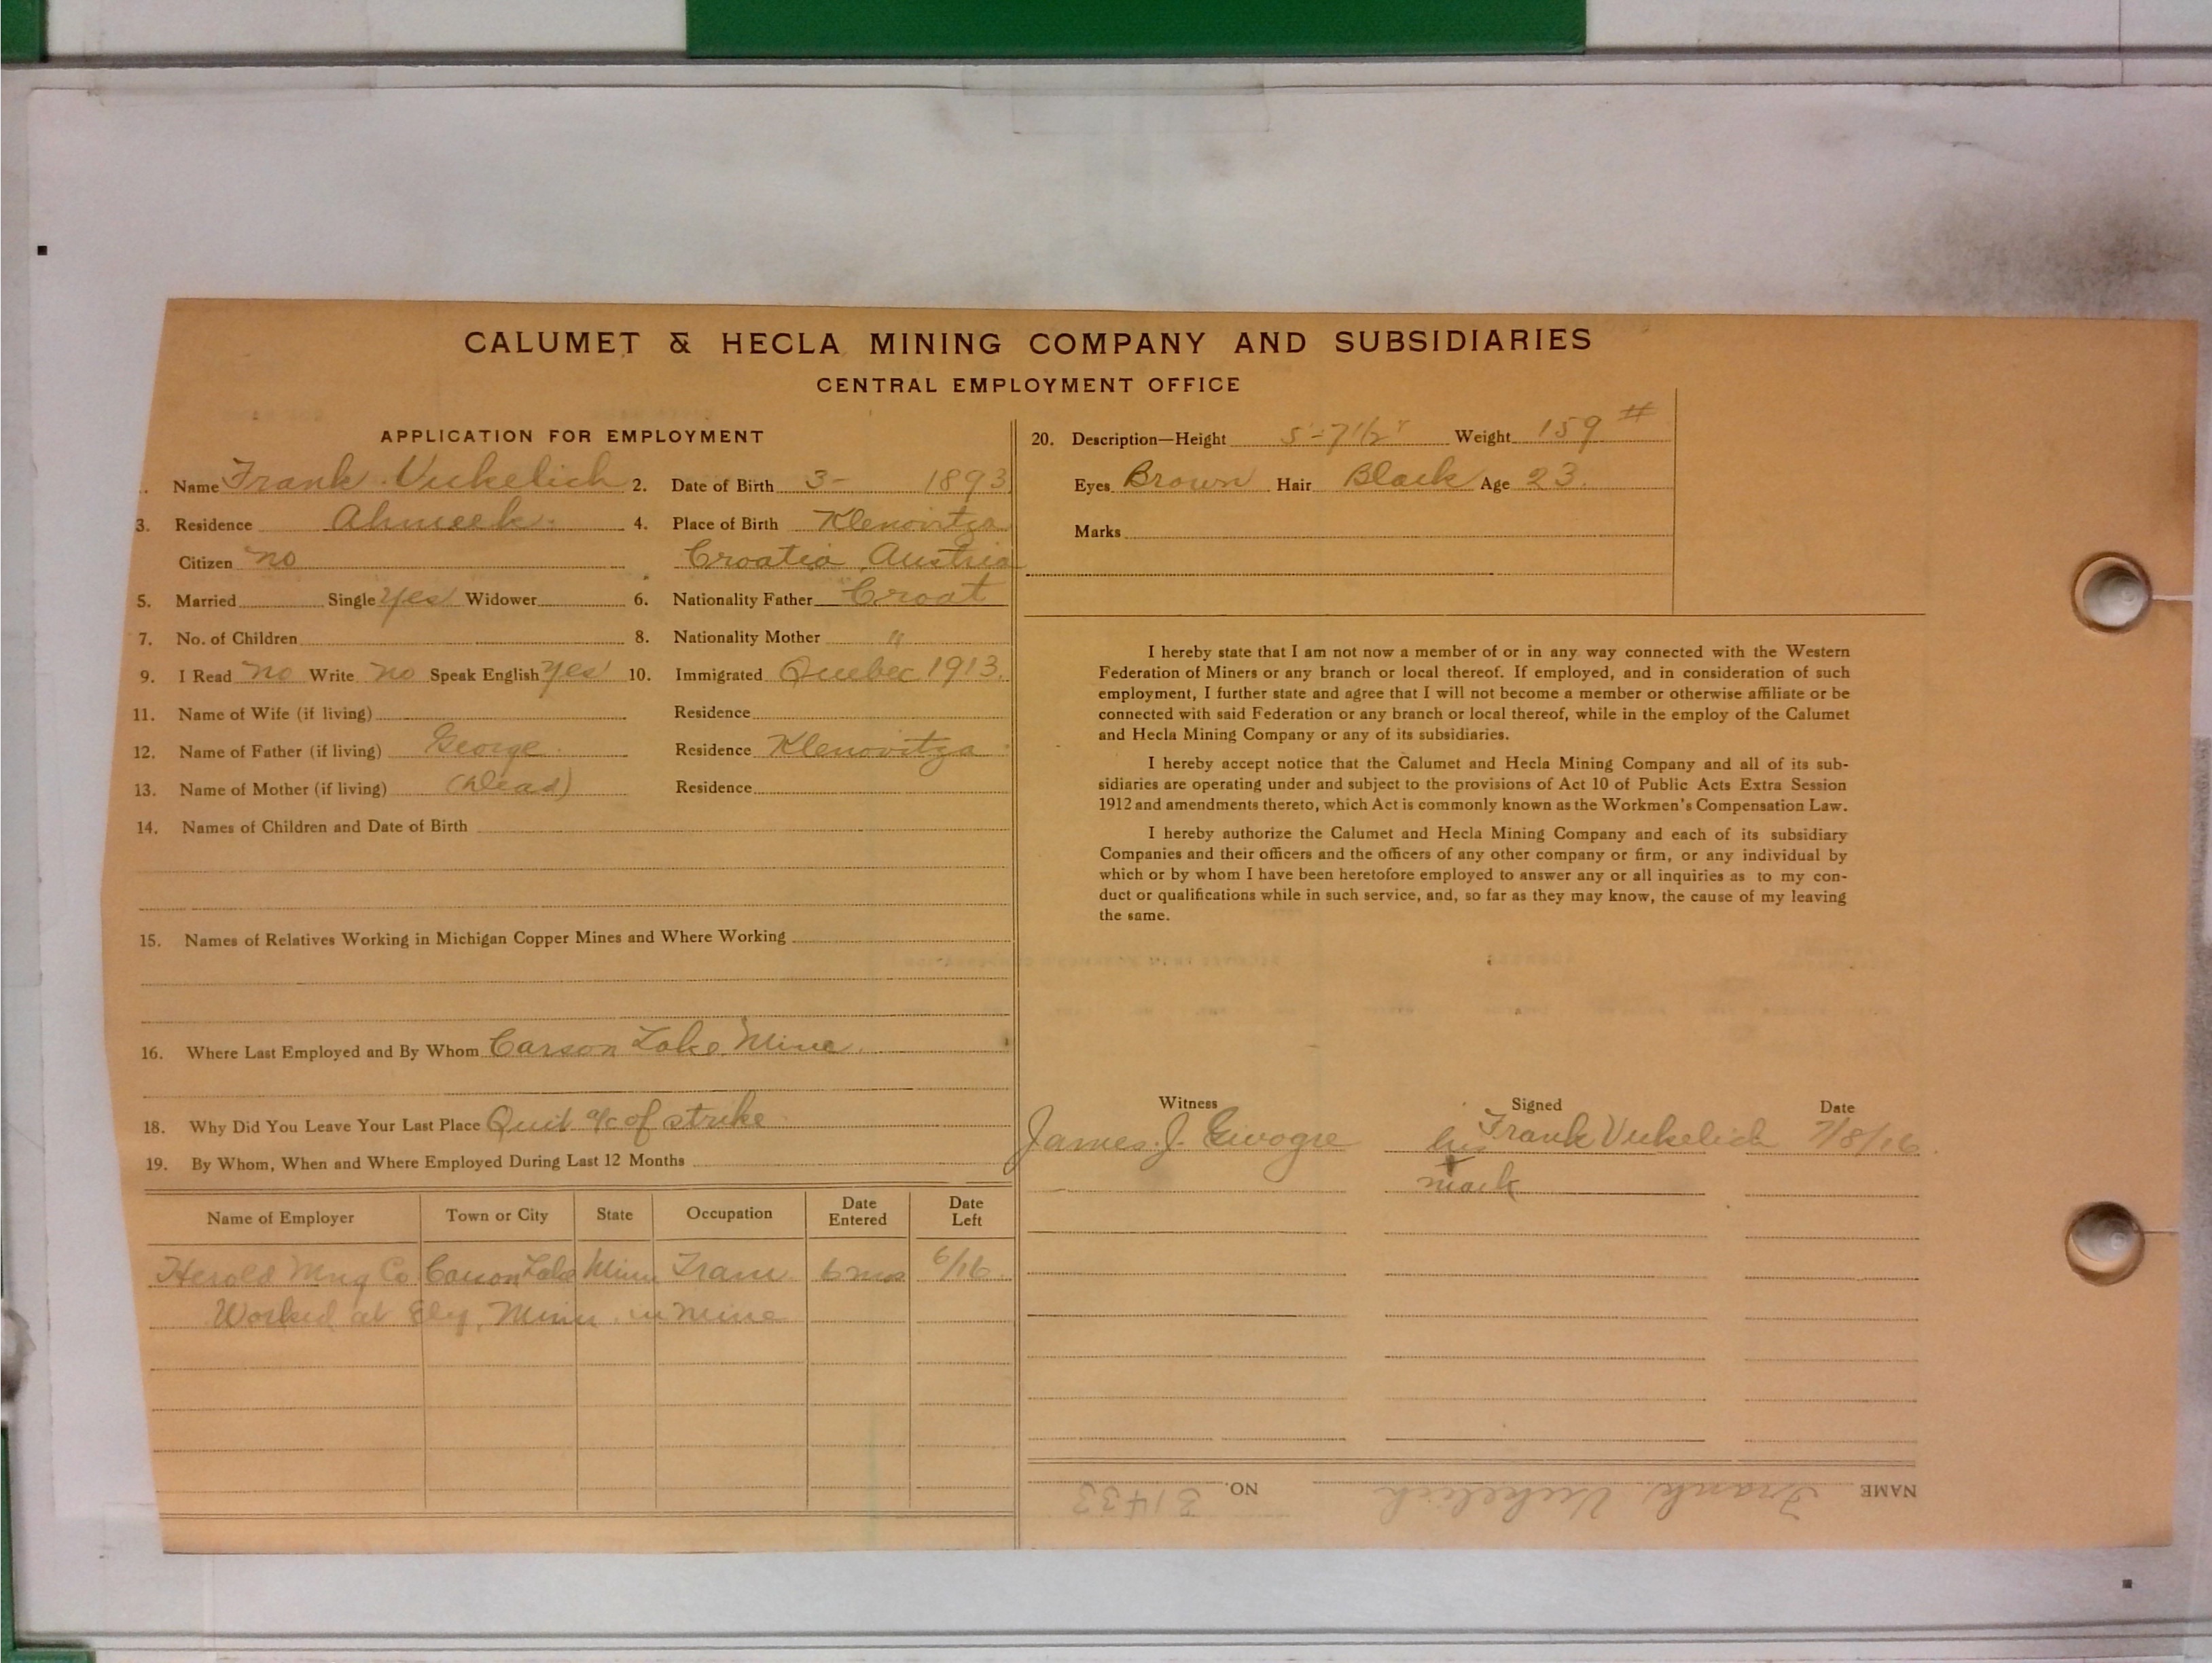 CALUMET & HECLA MINING COMPANY AND SUBSIDIARIES
CENTRAL EMPLOYMENT OFFICE
APPLICATION FOR EMPLOYMENT
Name Frank Vukelich 2. Date of Birth 3- 1893
3. Residence Ahmeek. 4. Place of Birth Klenovitza
Citizen no Croatia, Austria
5. Married Single Yes Widower 6. Nationality Father Croat
7. No. of Children 8. Nationality Mother "
9. I Read no Write no Speak English yes 10. Immigrated Quebec 1913.
11. Name of Wife (if living) Residence
12. Name of Father (if living) George Residence Klenovitza
13. Name of Mother (if living) (Dead) Residence
14. Names of Children and Date of Birth
15. Names of Relatives Working in Michigan Copper Mines and Where Working
16. Where Last Employed and By Whom Carson Lake Mine.
18. Why Did You Leave Your Last Place Quit a/c of strike
19. By Whom, When and Where Employed During Last 12 Months
Name of Employer Town or City State Occupation Date Entered Date Left
Herold Mng Co Carson Lake Minn Tram 6 mos 6/16
Worked at Ely, Minn. in mine
20. Description—Height 5'-7 1/2" Weight 159 #
Eyes Brown Hair Black Age 23.
Marks
I hereby state that I am not now a member of or in any way connected with the Western
Federation of Miners or any branch or local thereof. If employed, and in consideration of such
employment, I further state and agree that I will not become a member or otherwise affiliate or be
connected with said Federation or any branch or local thereof, while in the employ of the Calumet
and Hecla Mining Company or any of its subsidiaries.
I hereby accept notice that the Calumet and Hecla Mining Company and all of its sub-
sidiaries are operating under and subject to the provisions of Act 10 of Public Acts Extra Session
1912 and amendments thereto, which Act is commonly known as the Workmen's Compensation Law.
I hereby authorize the Calumet and Hecla Mining Company and each of its subsidiary
Companies and their officers and the officers of any other company or firm, or any individual by
which or by whom I have been heretofore employed to answer any or all inquiries as to my con-
duct or qualifications while in such service, and, so far as they may know, the cause of my leaving
the same.
Witness Signed Date
James J. his Frank Vukelich 7/8/16
mark
NAME Frank Vukelich NO. 31433